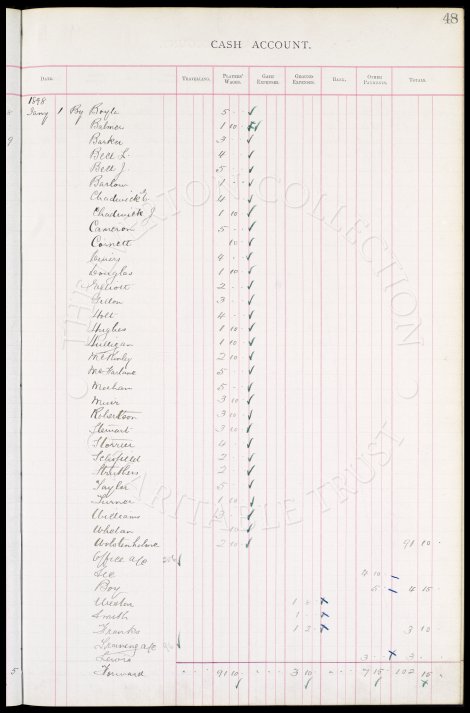 48
CASH ACCOUNT.
DATE. TRAVELLING. PLAYERS' WAGES. GATE EXPENSES. GROUND EXPENSES. RENT. OTHER PAYMENTS. TOTALS.
1898
Jany 1 By Boyle 5 - -
Balmer 1 10 -
Barker 3 - -
Bell L. 4 - -
Bell J. 5 - -
Barlow 1 - -
Chadwick E 4 - -
Chadwick J 1 10 -
Cameron 5 - -
Cornett 10 -
Divers 4 - -
Douglas 1 10 -
2 - -
3 - -
Holt 4 - -
Hughes 1 10 -
Hulligan 1 10 -
McKinley 2 10 -
McFarlane 5 - -
Meecham 5 - -
Muir 3 10 -
Robertson 3 10 -
Stewart 3 10 -
Storrier 4 - -
Schofield 2 - -
Struthers 2 - -
Taylor 5 - -
Turner 1 10 -
Williams 3 - -
Whelan 10 -
Wolstenholme 2 10 - 91 10 -
Office a/c
4 10 -
Boy 5 - 4 15 -
1
Smith 1 - -
Franks 1 3 10 -
Training a/c
Lewis 3 - - 3 - -
Forward 91 10 - 3 10 - 7 15 - 102 15 -
THE EVERTON COLLECTION
CHARITABLE TRUST